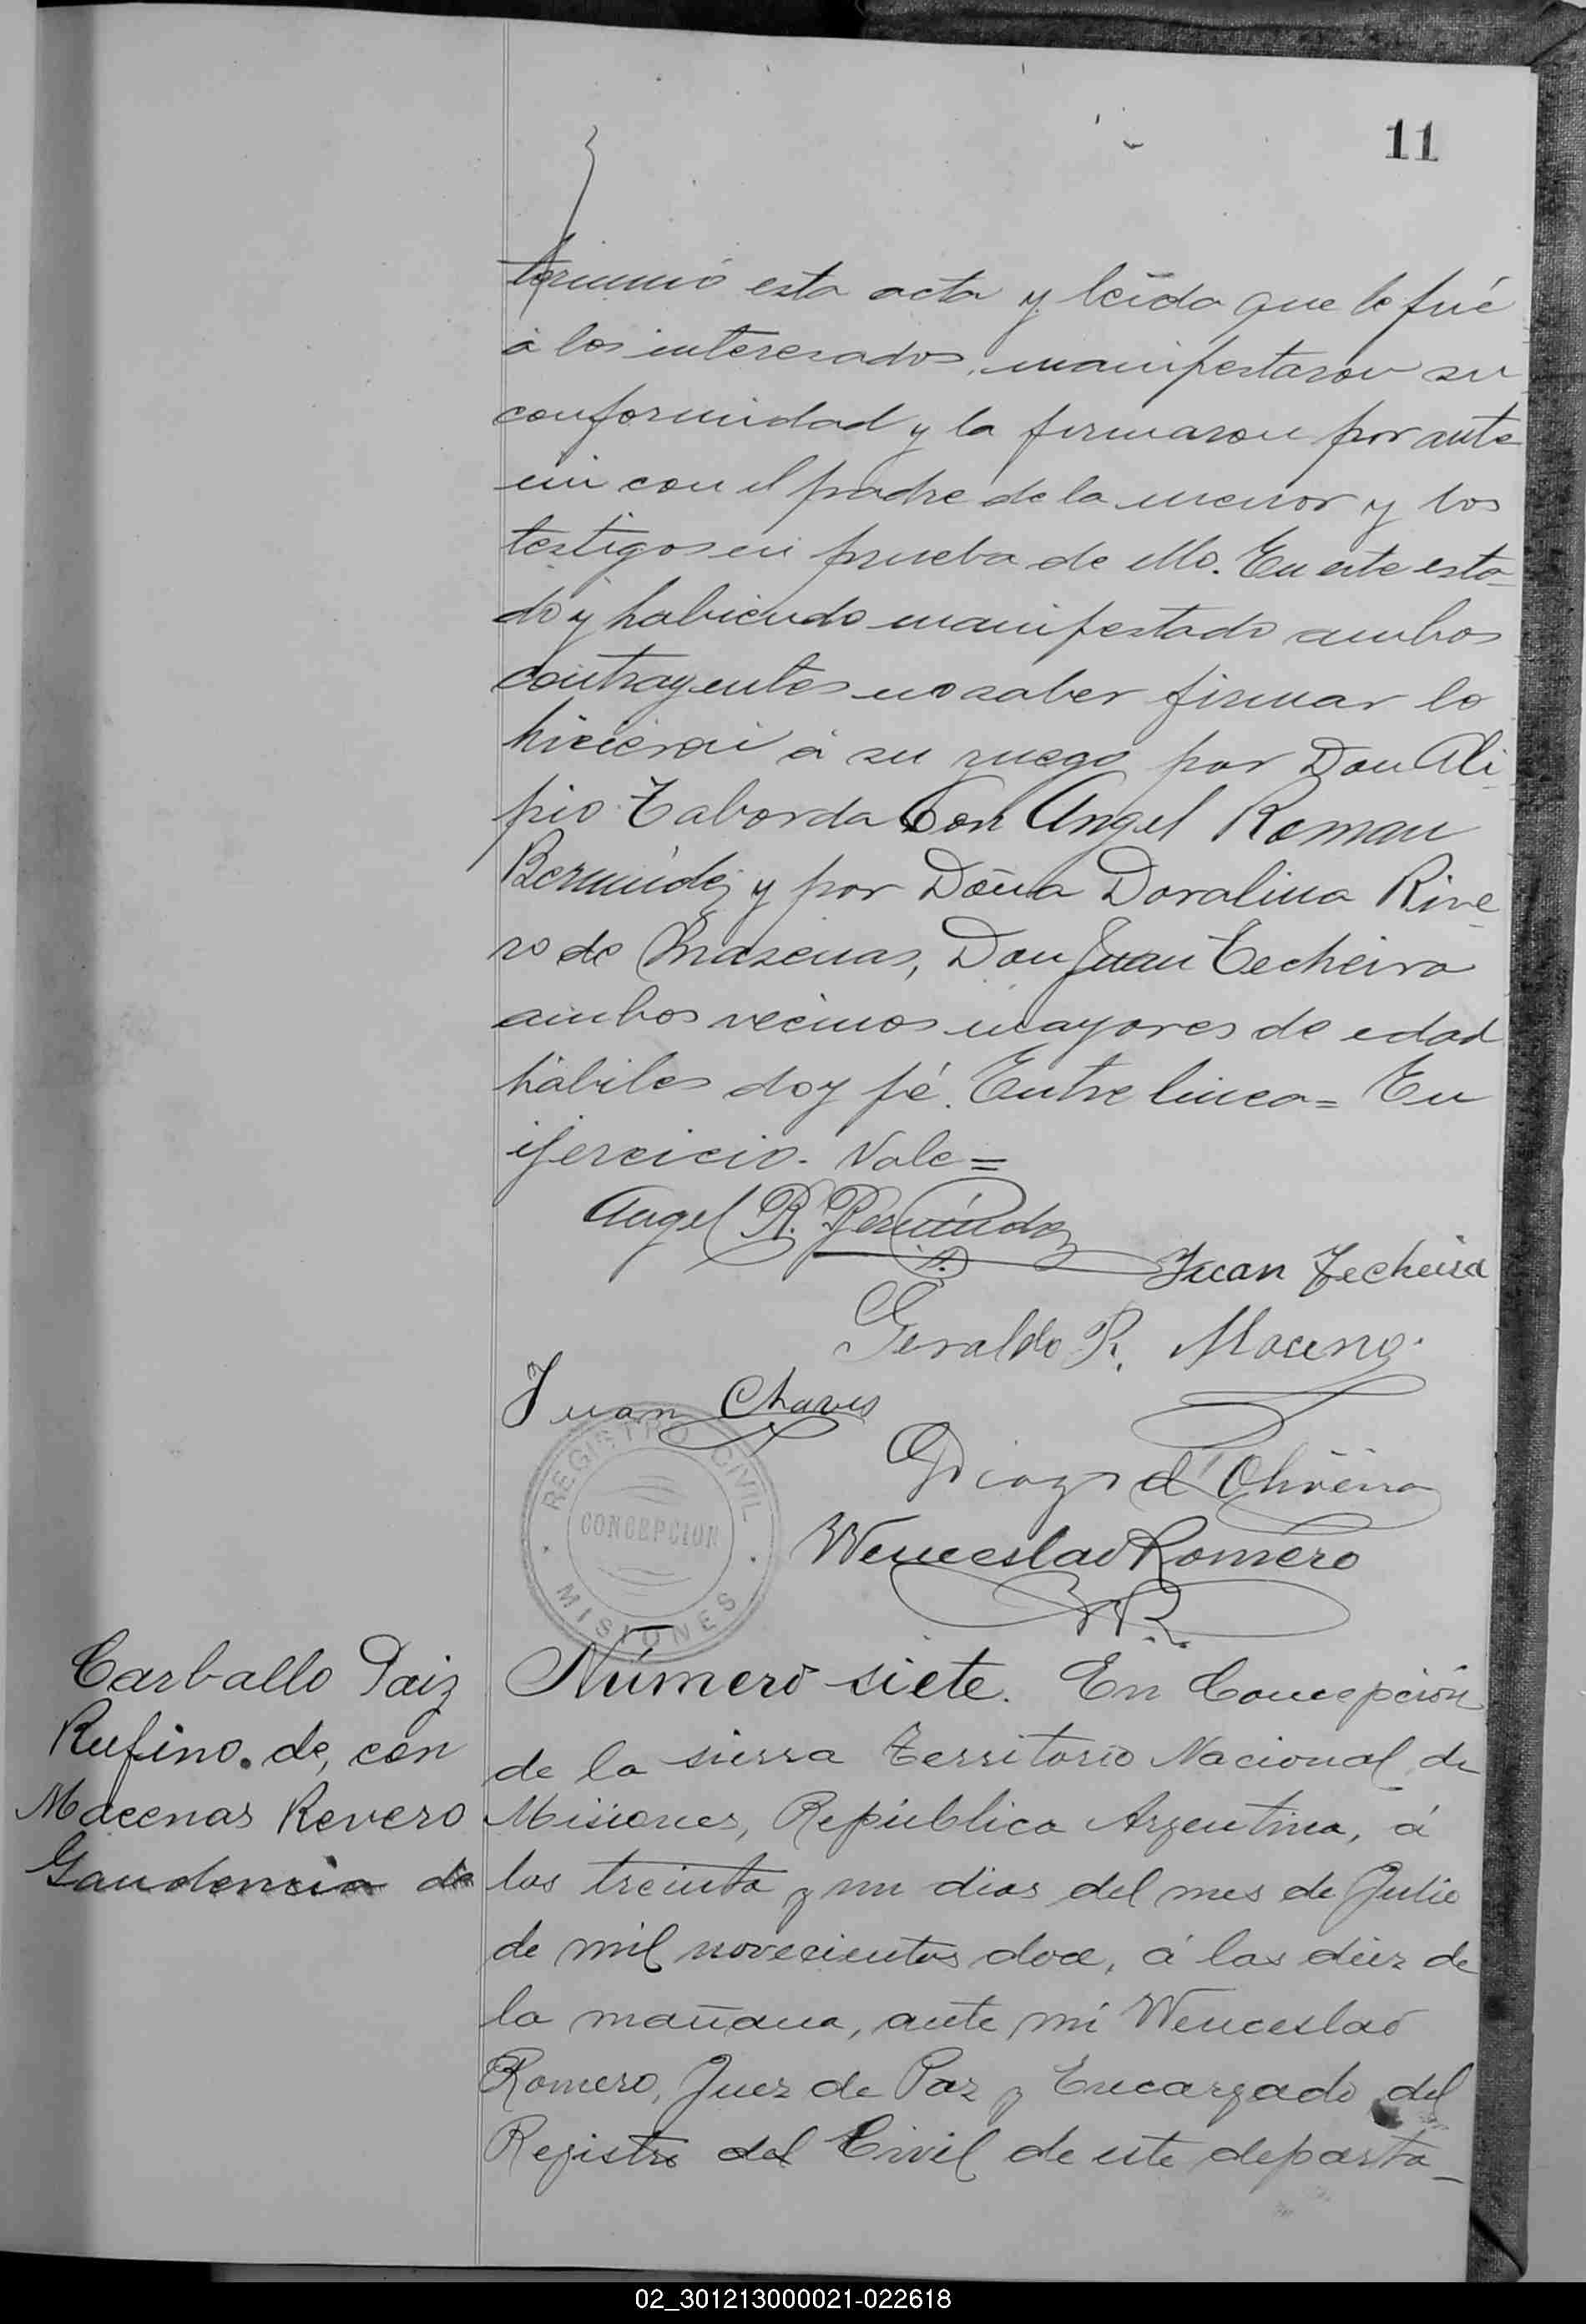 11
terminó esta acta y leída que le fué
á los interesados, manifestaron su
conformidad y la firmaron por ante
mi con el padre de la menor y los
testigos en prueba de ello. En este esta-
do y habiendo manifestado ambos
contrayentes no saber firmar lo
hicieron á su ruego por Don Ali-
pio Taborda Don Angel Roman
Bermúdez y por Doña Doralina Rive-
ro de Masenas, Don Juan Techeira
ambos vecinos mayores de edad
hábiles doy fé. Entre linea= En
ejercicio. Vale=
Angel R. Bermúdez
Juan Techeira
Geraldo R.
Juan Chaves
d'Oliveira
Wenceslao Romero
W R.
REGISTRO CIVIL
CONCEPCION
MISIONES
Carballo Paiz
Rufino. de, con
Macenas Revero
Gaudencia de
Número siete. En Concepción
de la sierra Territorio Nacional de
Misiones, República Argentina, á
los treinta y un dias del mes de Julio
de mil novecientos doce, á las diez de
la mañana, ante mi Wenceslao
Romero, Juez de Paz y Encargado del
Registro del Civil de este departa-
02_301213000021-022618